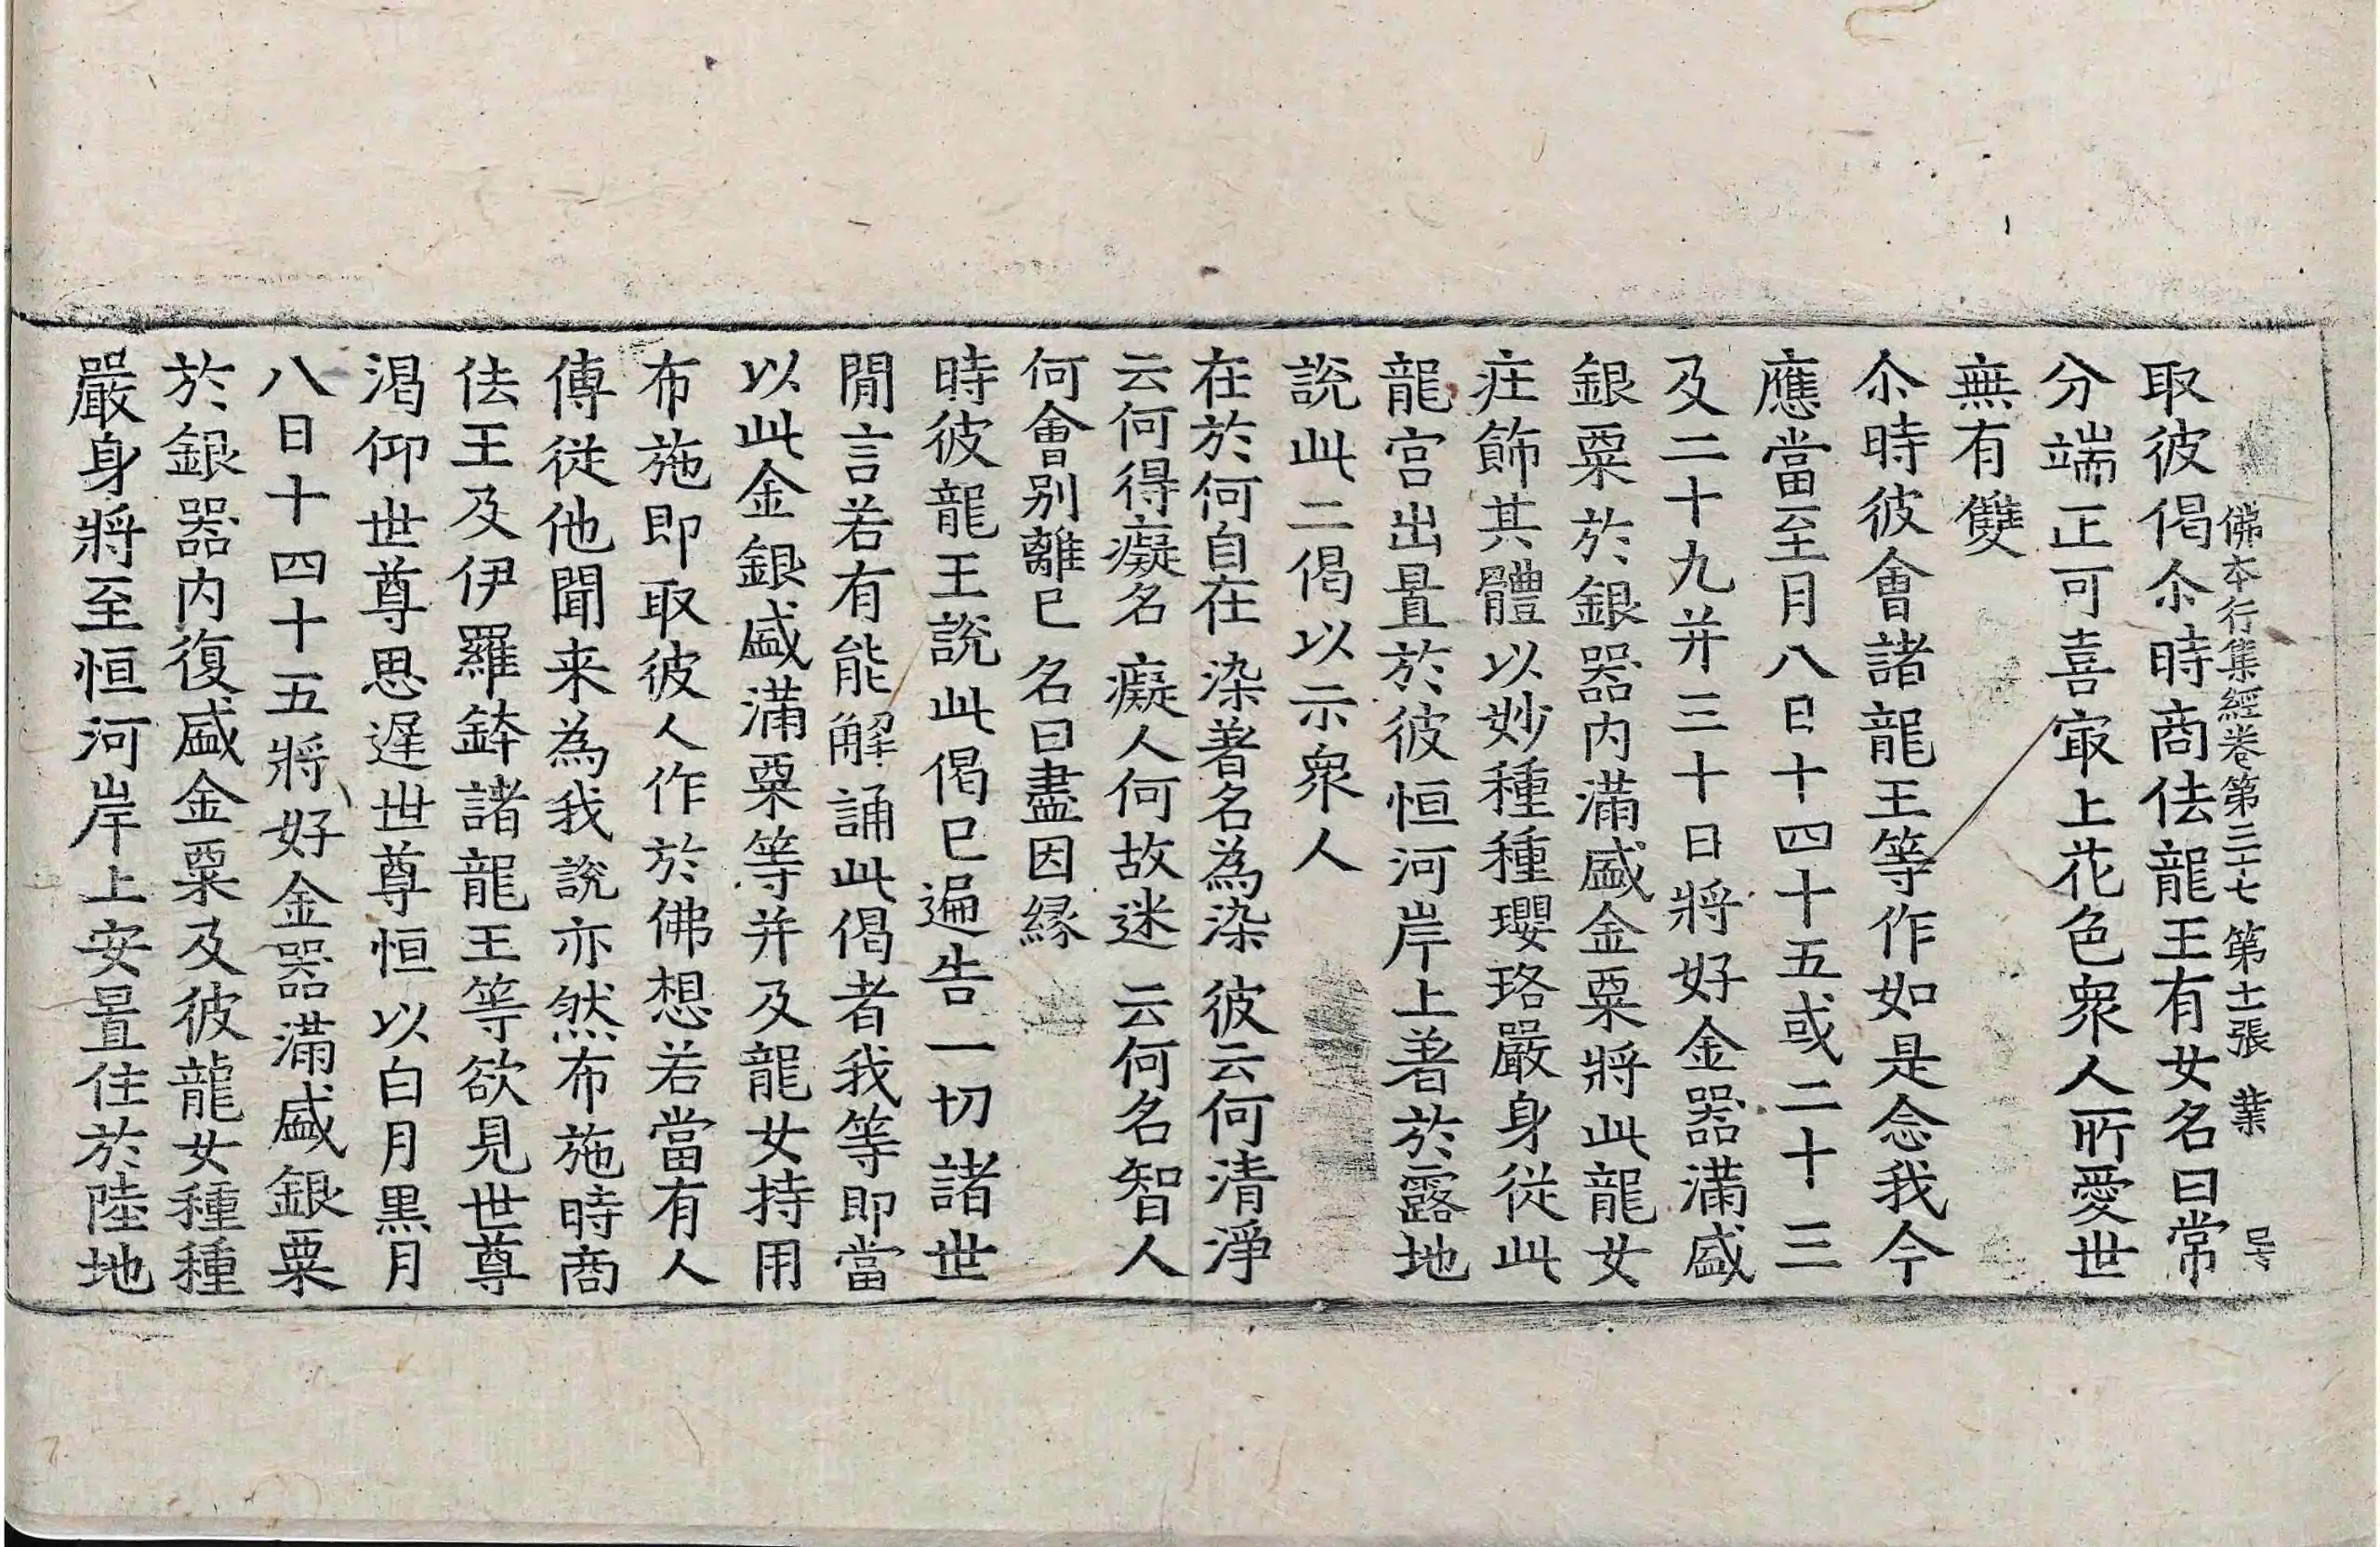 佛本行集經卷第三十七 第十二張 業 号
取彼偈尒時商佉龍王有女名曰常
分端正可喜㝡上花色衆人所愛世
無有雙
尒時彼會諸龍王等作如是念我今
應當至月八日十四十五或二十三
及二十九并三十日將好金器滿盛
銀粟於銀器内滿盛金粟將此龍女
庄飾其體以妙種種瓔珞嚴身從此
龍宫出置於彼恒河岸上著於露地
說此二偈以示衆人
在於何自在 染著名為染 彼云何清淨
云何得癡名 癡人何故迷 云何名智人
何會别離已 名曰盡因縁
時彼龍王說此偈已遍告一切諸世
閒言若有能解誦此偈者我等即當
以此金銀盛滿粟等并及龍女持用
布施即取彼人作於佛想若當有人
傳從他聞来為我說亦然布施時商
佉王及伊羅鉢諸龍王等欲見世尊
渴仰世尊思遲世尊恒以白月黒月
八日十四十五將好金器滿盛銀粟
於銀器内復盛金粟及彼龍女種種
嚴身將至恒河岸上安置住於陸地